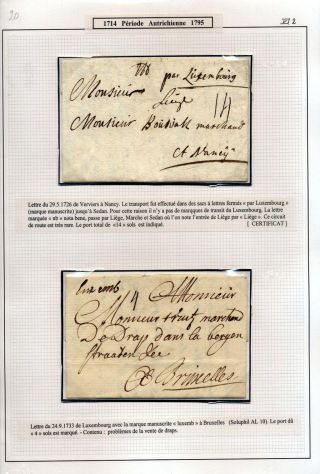 20
1714 Période Autrichienne 1795
XI 2
par Luxembourg
Monsieur
Liege
14
Monsieur marchand
A Nancy
Lettre du 29.5.1726 de Verviers à Nancy. Le transport fut effectué dans des sacs à lettres fermés « par Luxembourg »
(marque manuscrite) jusqu'à Sedan. Pour cette raison il n'y a pas de marques de transit du Luxembourg. La lettre
marquée « nb » nota bene, passe par Liège, Marche et Sedan où l'on note l'entrée de Liège par « Liège ». Ce circuit
de route est très rare. Le port total de «14 » sols est indiqué.
[ CERTIFICAT ]
luxemb
4
A Monsieur
Monsieur marchand
De Drap dans la bergen
straaden See
A Bruxelles
Lettre du 24.9.1733 de Luxembourg avec la marque manuscrite « luxemb » à Bruxelles (Soluphil AL 10). Le port dû
« 4 » sols est marqué - Contenu : problèmes de la vente de draps.